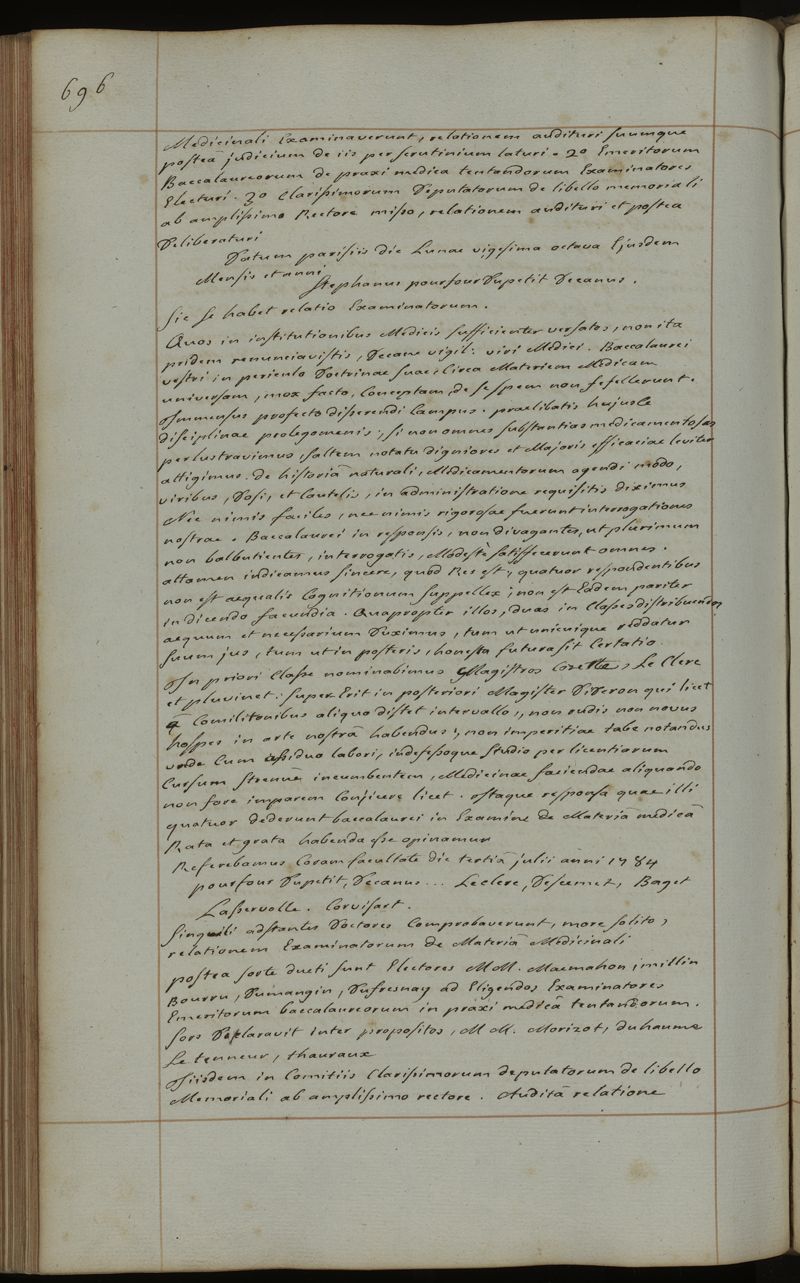 696
Medicinali Examinaverunt, relationem audituri suumque
posteà judicium de iis per scrutinium laturi. 2o Emeritorum
Baccalaureorum de praxi medica tentandorum Examinatores
Electuri. 3o Clarissimorum Deputatorum de libello memoriali
ab amplissimo Rectore misso, relationem audituri et postea
Deliberaturi
Datum parisiis die Lunae vigesima octava Ejusdem
Mensis et anni
Stephanus pourfour Dupetit Decanus.
Sic se habet relatio Examinatorum.
Quos in institutionibus Medicis sufficienter versatos, non ita
pridem renunciavistis, Decane vigil: viri Medici. Baccalaurei
vestri in periculo Doctrinae suae circa Materiem Medicam
universam, mox facto, Conceptam de se spem non fefellerunt.
Immensus profecto disserendi Campus. praelibatis hujusce
disciplinae prolegomenis, si non omnes substantias medicamentosas
perlustravimus saltem notatu digniores et Majoris efficaciae leviter
attigimus. De historiâ naturali, Medicamentorum agendi modo,
viribus, Dosi, et Cautelis, in administratione requisitis diximus
Nec nimis faciles, nec nimis rigorosae fuerunt interrogationes
nostrae. Baccalaurei in responsis, non divagantes, ut plurimum
non balbutientes, interrogatis, Modestè satisfecerunt omnes.
attamen indicamus sincere, quod Res est, quatuor respondentibus
non est aequalis Cognitionum suppellex; non est Eadem pariter
in dicendo facundia. Quapropter illos, duas in Classes distribuendos
aequum et necessarium Duximus, tum ut unicuique reddatur
suum jus, tum ut in posteris, honesta futura sit Certatio.
In priori Classe nominabimus Magistros Cozette, Le Clerc
et pluvinet: super Erit in posteriori Magister Dideron qui licet
à Comilitonibus aliquo distet intervallo, non rudis non novus
hospes in arte nostrâ habendus, non imperitiae labe notandus
unde Cum assiduo labori, indefessoque studio per licentiarum
Cursum strenuè incumbentem, Medicinae faciendae aliquando
non fore imparem Conjicere licet. Itaque responsa quae illi
quatuor dederunt baccalaurei in Examine de Materia medicâ
Rata et grata habenda esse opinamur
Referebamus Coram facultate die tertiâ julii anni 1784
pourfour Dupetit, Decanus... Leclerc, Descemet, Baget
Lasservolle. Corvisart.
Singuli adstantes Doctores Comprobaverunt, more solito,
relationem Examinatorum de Materiâ Medicinali
postea sorte ducti sunt Electores MM. Macmahon, millin
Bourru, Dumangin, Dufresnay ad Eligendos Examinatores
Emeritorum baccalaureorum in praxi medicâ tentandorum.
Sors Declaravit inter propositos, MM. Morizot, duhaume
Le tenneur, thauraux
Iisdem in Comitiis Clarissimorum deputatorum de libello
Memoriali ab amplissimo rectore. Auditâ relatione